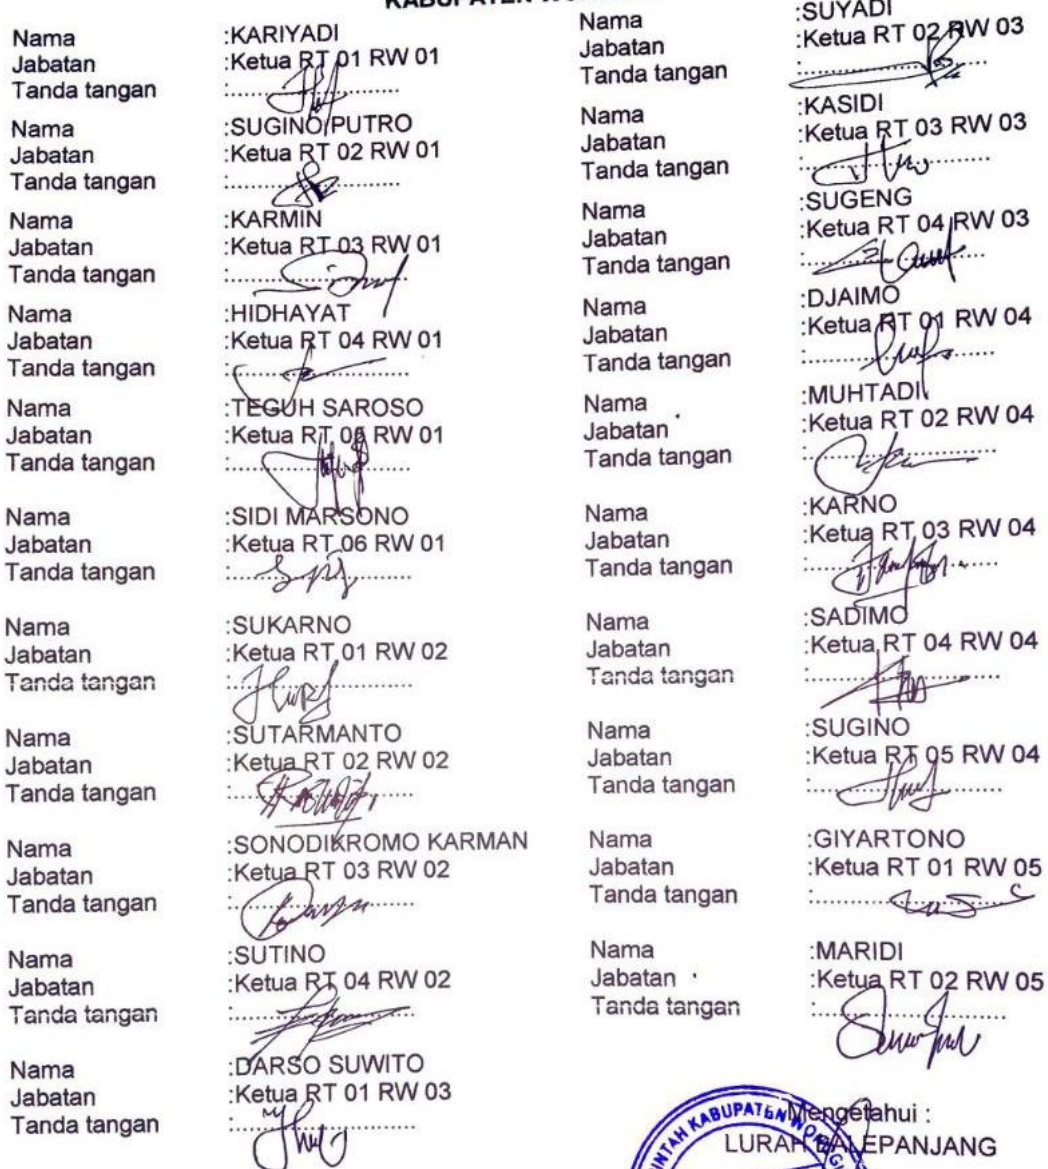 KABUPATEN
Nama :KARIYADI
Jabatan :Ketua RT 01 RW 01
Tanda tangan :....................
Nama :SUGINO PUTRO
Jabatan :Ketua RT 02 RW 01
Tanda tangan :....................
Nama :KARMIN
Jabatan :Ketua RT 03 RW 01
Tanda tangan :....................
Nama :HIDHAYAT
Jabatan :Ketua RT 04 RW 01
Tanda tangan :....................
Nama :TEGUH SAROSO
Jabatan :Ketua RT 05 RW 01
Tanda tangan :....................
Nama :SIDI MARSONO
Jabatan :Ketua RT 06 RW 01
Tanda tangan :....................
Nama :SUKARNO
Jabatan :Ketua RT 01 RW 02
Tanda tangan :....................
Nama :SUTARMANTO
Jabatan :Ketua RT 02 RW 02
Tanda tangan :....................
Nama :SONODIKROMO KARMAN
Jabatan :Ketua RT 03 RW 02
Tanda tangan :....................
Nama :SUTINO
Jabatan :Ketua RT 04 RW 02
Tanda tangan :....................
Nama :DARSO SUWITO
Jabatan :Ketua RT 01 RW 03
Tanda tangan :....................
Nama :SUYADI
Jabatan :Ketua RT 02 RW 03
Tanda tangan :....................
Nama :KASIDI
Jabatan :Ketua RT 03 RW 03
Tanda tangan :....................
Nama :SUGENG
Jabatan :Ketua RT 04 RW 03
Tanda tangan :....................
Nama :DJAIMO
Jabatan :Ketua RT 01 RW 04
Tanda tangan :....................
Nama :MUHTADI
Jabatan :Ketua RT 02 RW 04
Tanda tangan :....................
Nama :KARNO
Jabatan :Ketua RT 03 RW 04
Tanda tangan :....................
Nama :SADIMO
Jabatan :Ketua RT 04 RW 04
Tanda tangan :....................
Nama :SUGINO
Jabatan :Ketua RT 05 RW 04
Tanda tangan :....................
Nama :GIYARTONO
Jabatan :Ketua RT 01 RW 05
Tanda tangan :....................
Nama :MARIDI
Jabatan :Ketua RT 02 RW 05
Tanda tangan :....................
Mengetahui :
LURAH BALEPANJANG
KABUPATEN